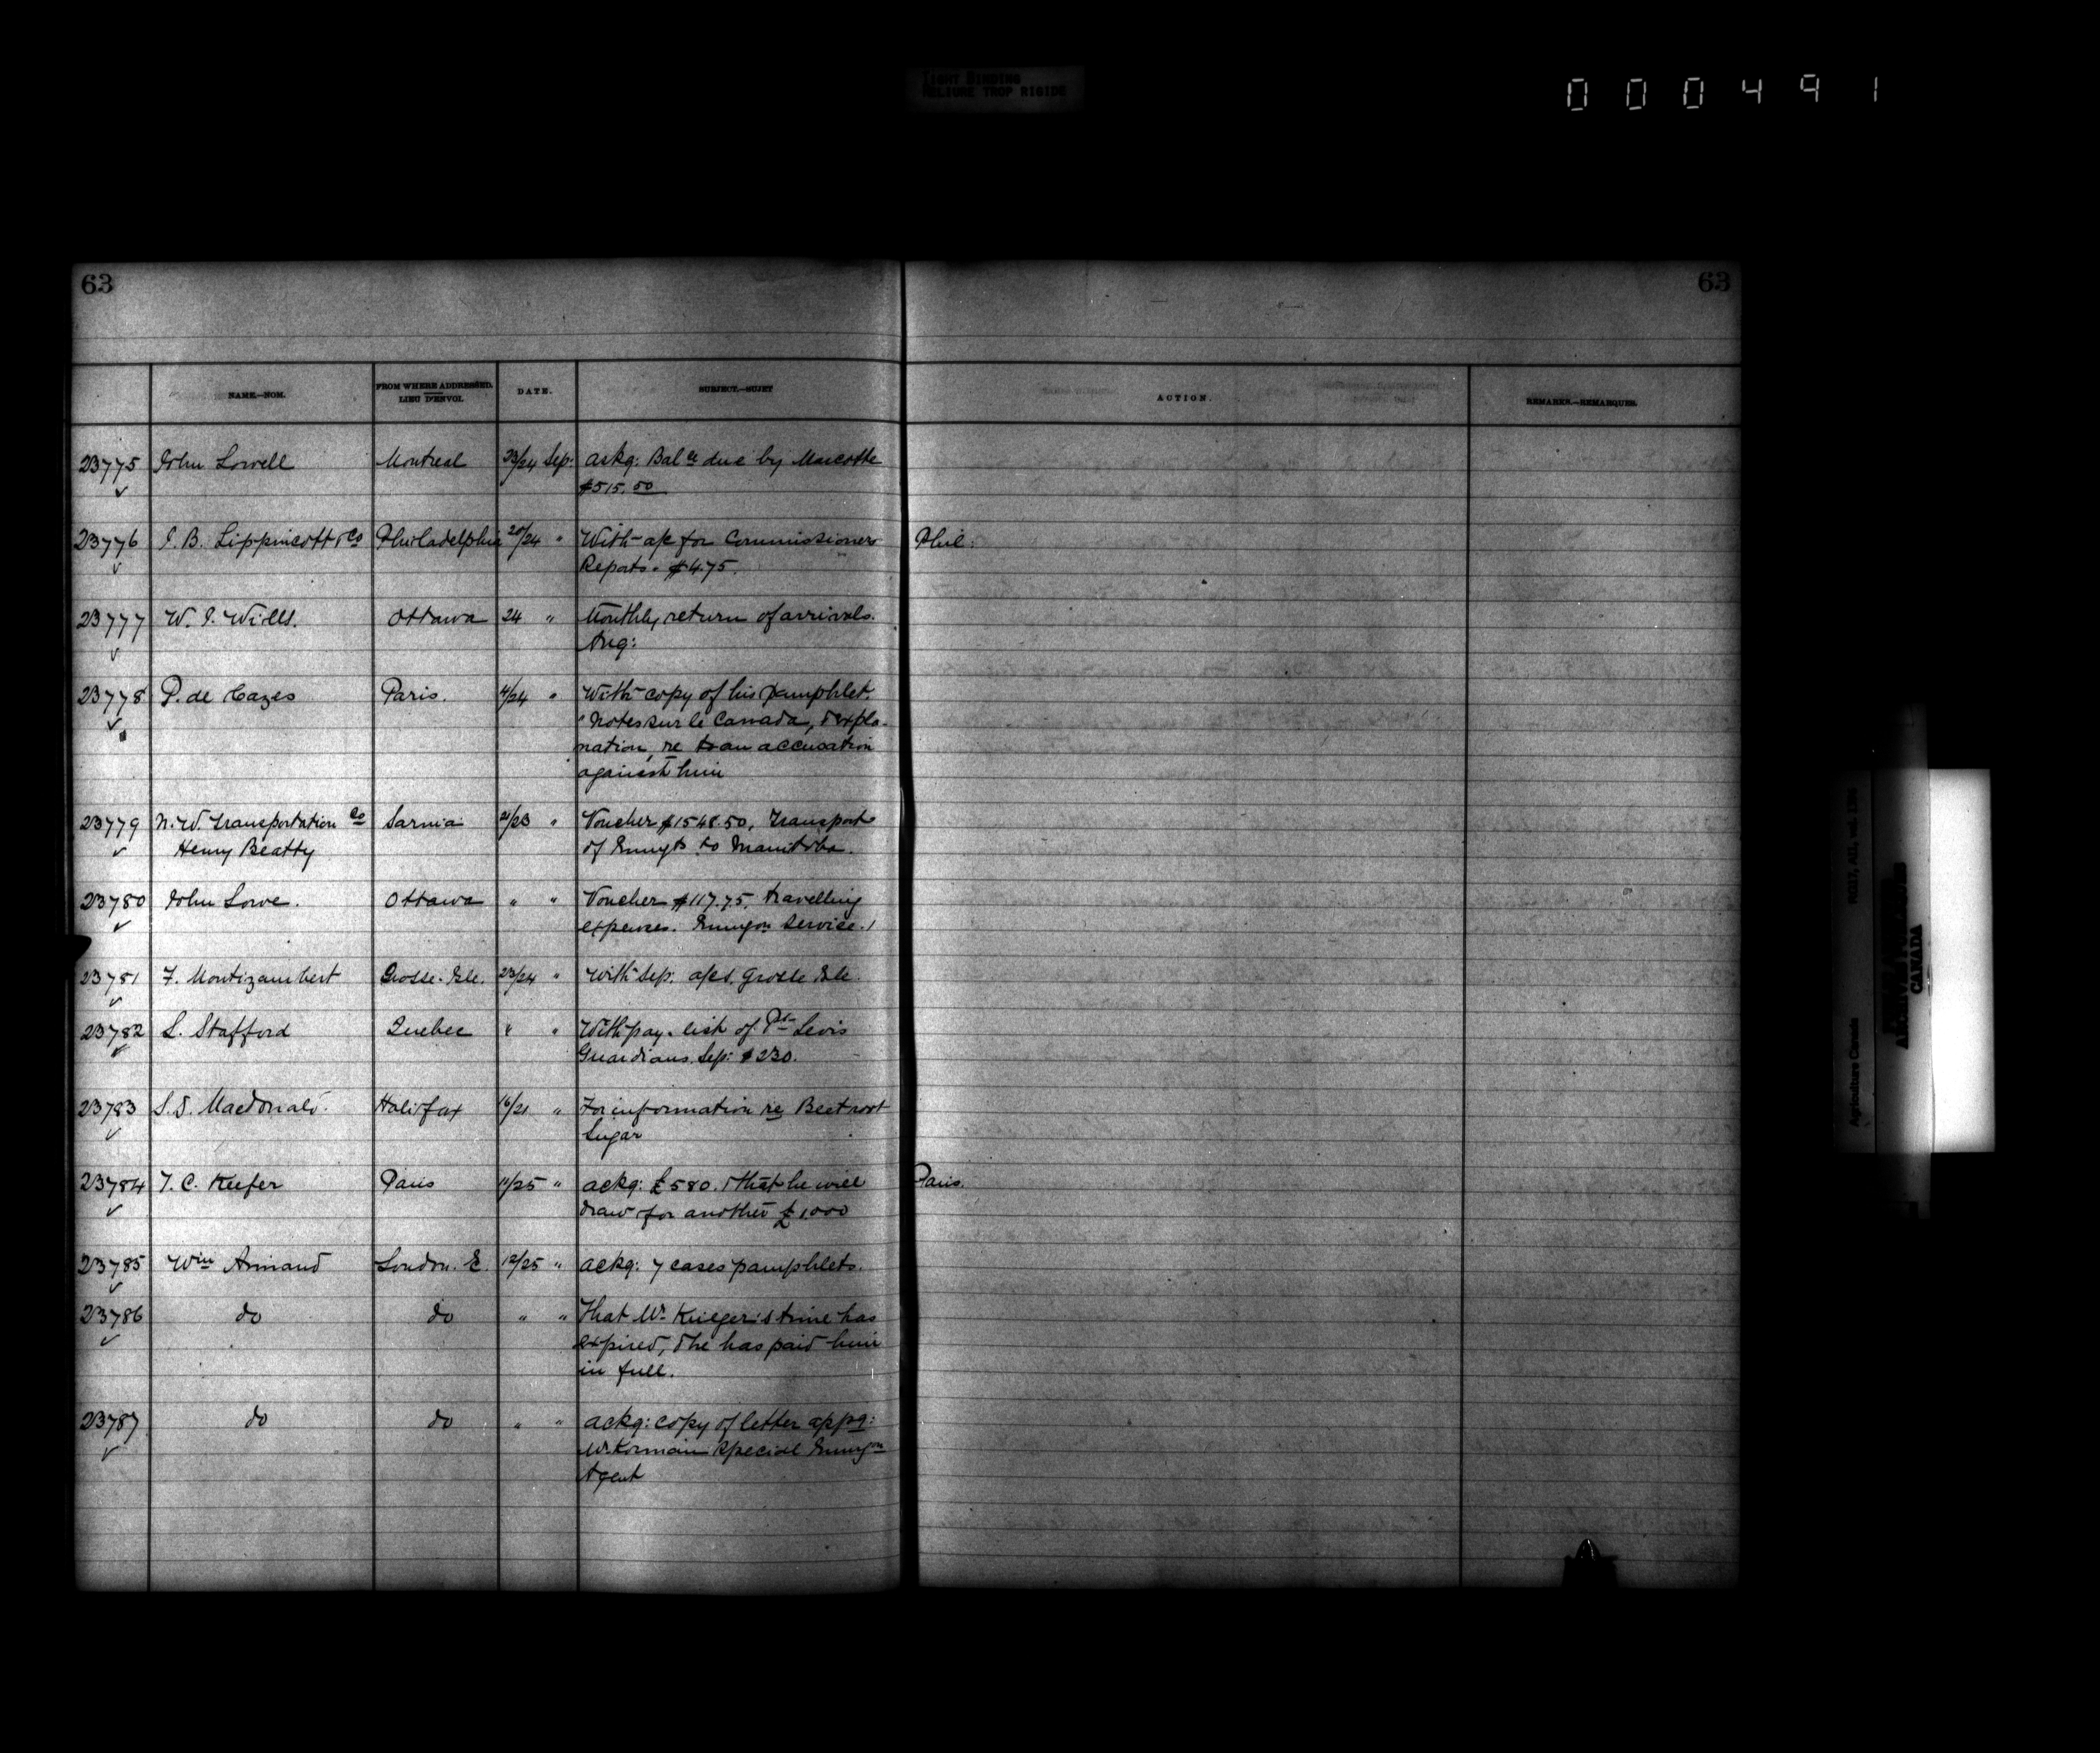 TIGHT BINDING
RELIURE TROP RIGIDE
000491
63
63
NAME.—NOM.
FROM WHERE ADDRESSED.
LIEU D'ENVOI.
DATE.
SUBJECT.—SUJET
ACTION.
REMARKS.—REMARQUES.
23775 John Lowell Montreal 23/24 Sep: ackg: Balce due by Marcotte
$515.50
23776 J. B. Lippincott & Co Philadelphia 20/24 " With a/c for Commissioners Phil:
Reports. $4.75.
23777 W. J. Wills. Ottawa 24 " Monthly return of arrivals.
Aug:
23778 P. de Cazes Paris. 4/24 " With copy of his pamphlet.
"Notes sur le Canada, & expla-
nation, re to an accusation
against him
23779 N. W. Transportation Co Sarnia 21/23 " Voucher $1548.50, Transport
Henry Beatty of Emigts to Manitoba.
23780 John Lowe. Ottawa " " Voucher $117.75, travelling
expenses. Emigon Service.
23781 F. Montizambert Grosse-Isle. 23/24 " With Sep: a/cs, Grosse Isle
23782 L. Stafford Quebec " " With pay-list of Pt Levis
Guardians. Sep: $230.
23783 S. S. Macdonald. Halifax 16/21 " For information re Beetroot
Sugar
23784 T. C. Keefer Paris 11/25 " ackg: £580. & that he will Paris.
draw for another £1,000
23785 Wm Annand London. E. 12/25 " ackg: 7 cases pamphlets.
23786 do do " " That Mr Krieger's time has
expired, & he has paid him
in full.
23787 do do " " ackg: copy of letter appg:
Mr Special Emigon
Agent
RG17, AII, vol.
Agriculture Canada
CANADA